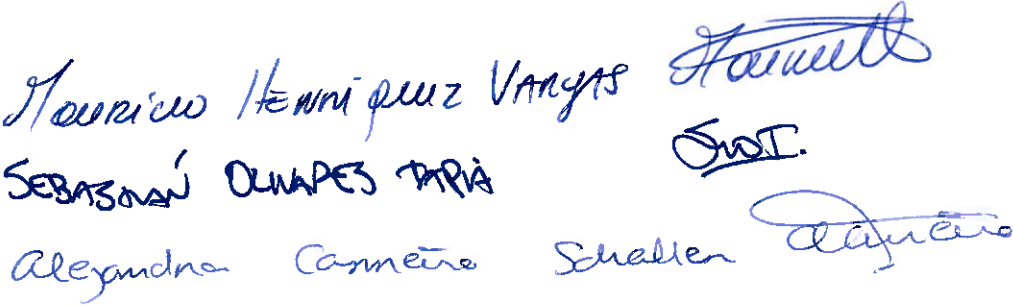 Mauricio Henriquez Vargas
SEBASTIÁN OLIVARES TAPIA
Alejandra Carreño Schaller